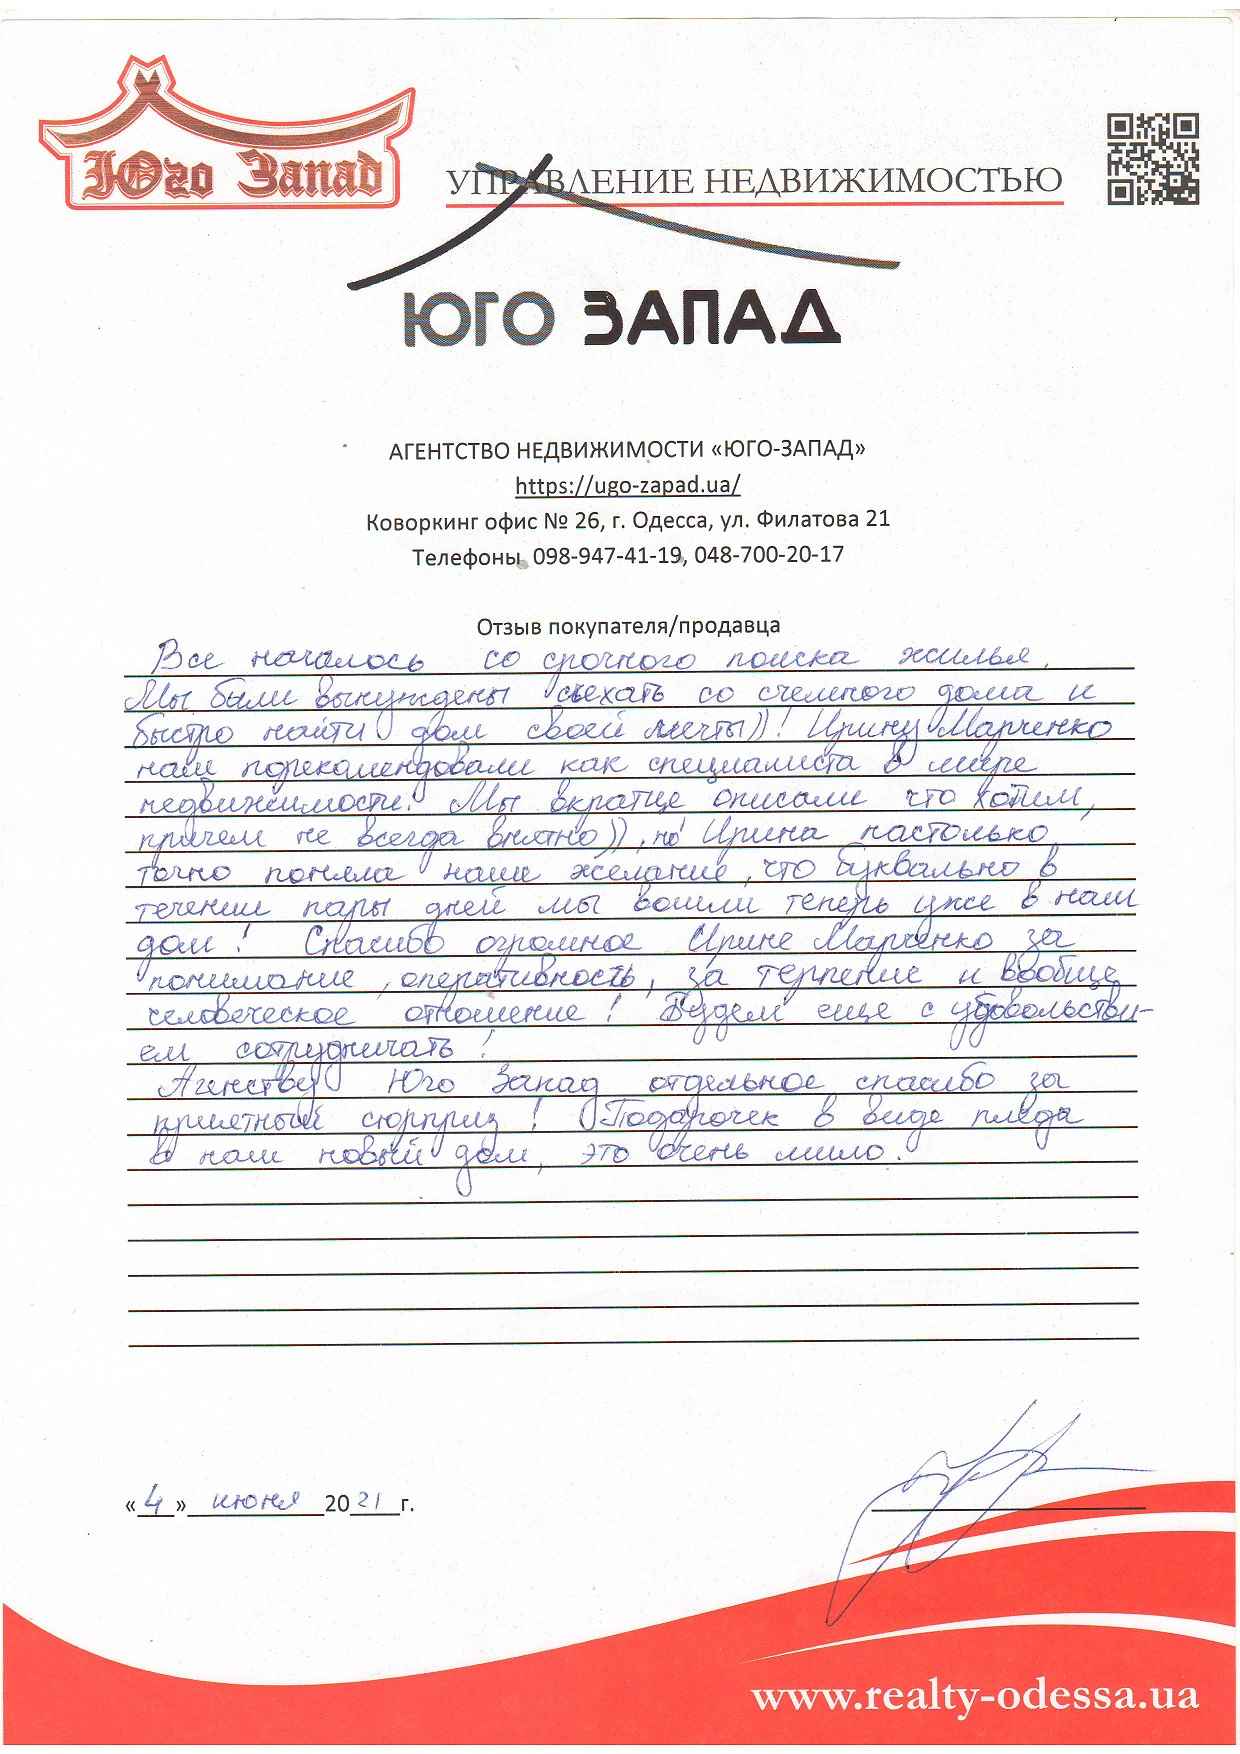 Юго Запад
УПРАВЛЕНИЕ НЕДВИЖИМОСТЬЮ
ЮГО ЗАПАД
АГЕНТСТВО НЕДВИЖИМОСТИ «ЮГО-ЗАПАД»
https://ugo-zapad.ua/
Коворкинг офис № 26, г. Одесса, ул. Филатова 21
Телефоны 098-947-41-19, 048-700-20-17
Отзыв покупателя/продавца
Все началось со срочного поиска жилья.
Мы были вынуждены съехать со съемного дома и
быстро найти дом своей мечты))! Ирину Марченко
нам порекомендовали как специалиста в мире
недвижимости. Мы вкратце описали что хотим,
причем не всегда внятно)), но Ирина настолько
точно поняла наше желание, что буквально в
течении пары дней мы вошли теперь уже в наш
дом! Спасибо огромное Ирине Марченко за
понимание, оперативность, за терпение и вообще
человеческое отношение! Будем еще с удовольстви-
ем сотрудничать!
Агенству Юго Запад отдельное спасибо за
приятный сюрприз! Подарочек в виде пледа
в наш новый дом, это очень мило.
«4» июня 2021 г.
www.realty-odessa.ua